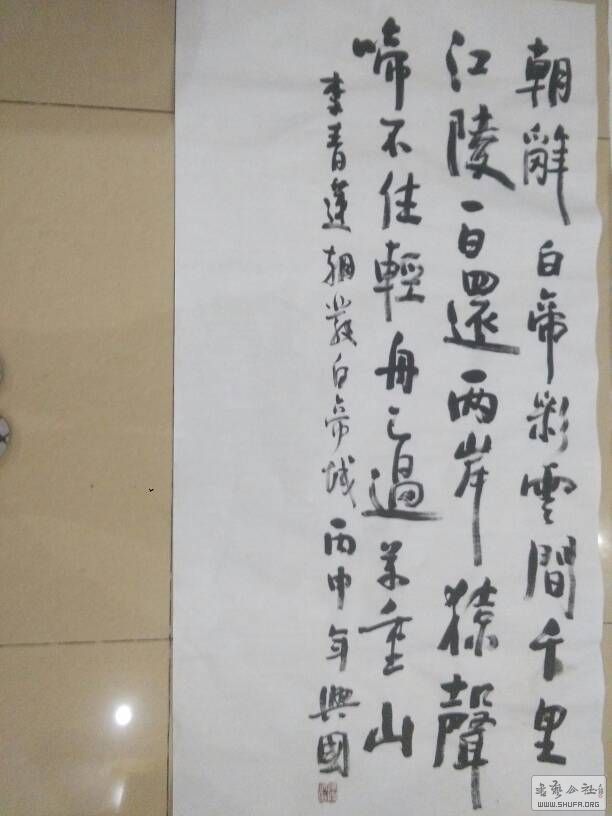 朝辭白帝彩雲間千里
江陵一日還兩岸猿聲
啼不住輕舟已過萬重山
李青蓮朝發白帝城丙申年興國
書藝公社
WWW.SHUFA.ORG